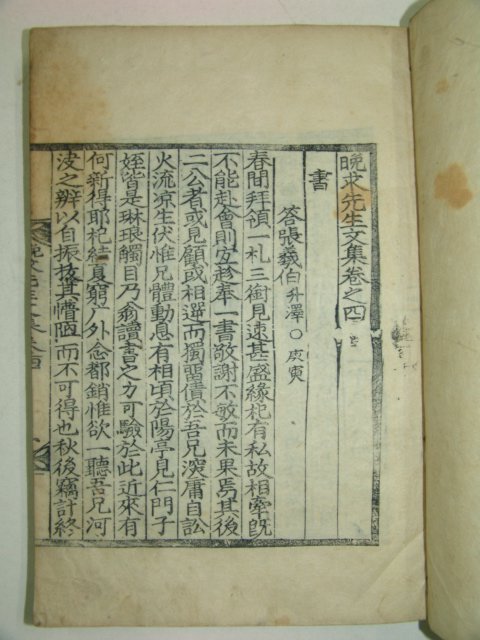 晩求先生文集卷之四
書
答張羲伯升澤○庚寅
春間拜領一札三銜見速甚盛緣杞有私故相牽旣
不能赴會則安趁奉一書敬謝不敏而未果焉其後
二公者或見顧或相選而獨留債於吾兄演庸自訟
火流凉生伏惟兄體動息有相頃於陽亭見仁門子
姪皆是琳琅觸目乃翁讀書之力可驗於此近來有
何新得耶杞夏窮戶外念都銷惟欲一聽吾兄河
決之辨以自振拔其懵陋而不可得也秋後竊計終